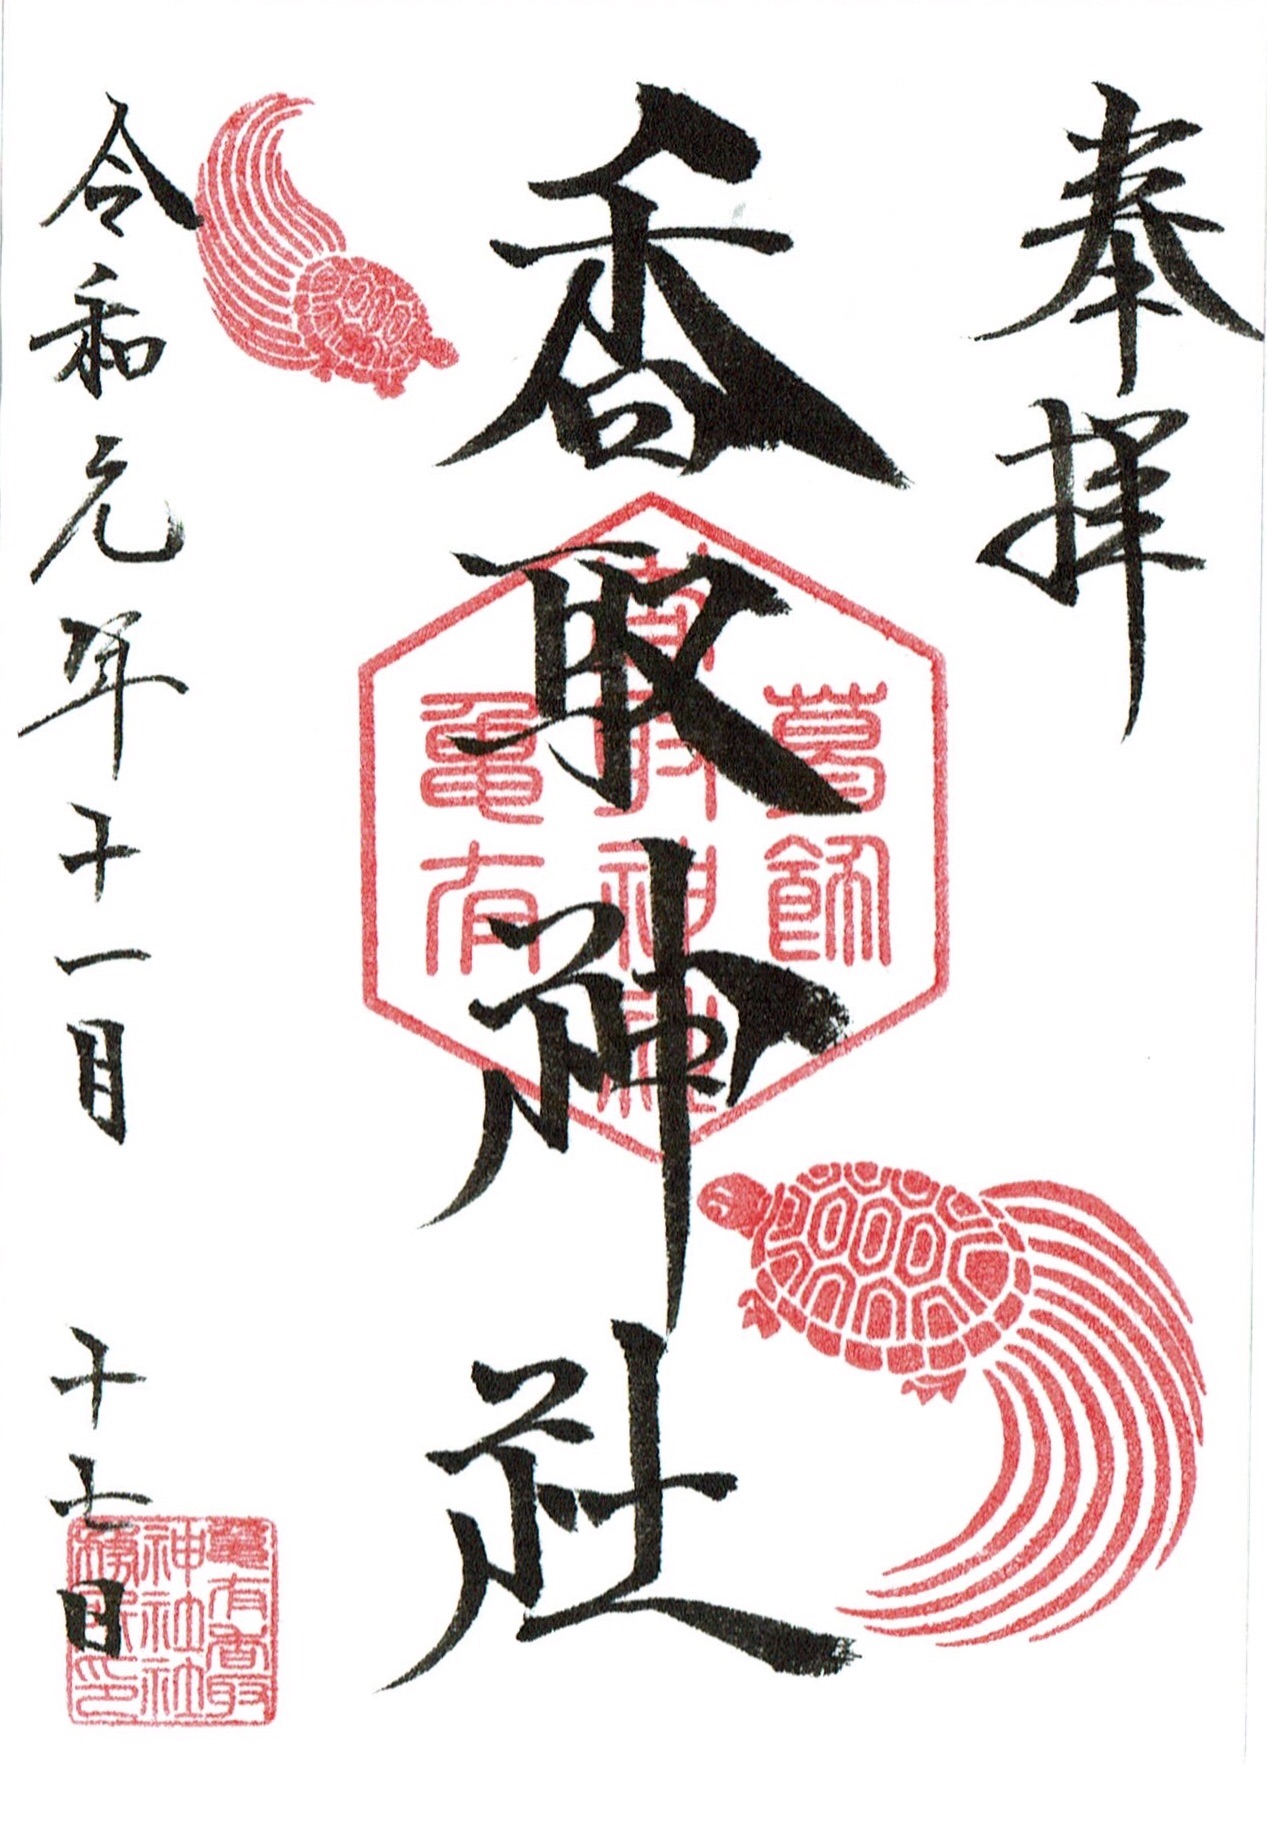 奉拝
香取神社
葛飾
香取神社
亀有
令和元年十一月 十七日
亀有香取
神社社
務所印